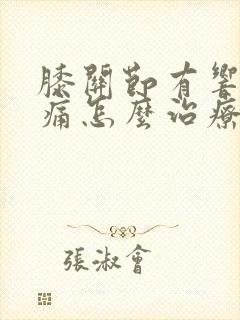 膝關節有響
痛怎麼治療
張淑會